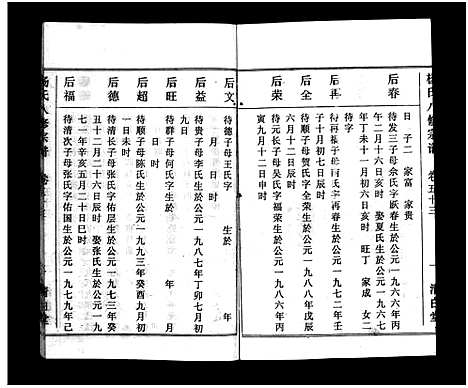 杨氏八修宗谱 卷五十三
一 清白堂
日 子二 家富 家贵
后春
待发三子母余氏字跃春生於公元一九六六年丙
午二月十六日亥时 娶夏氏生於公元一九六七
年丁未十一月初六日亥时 子二 旺丁 家成 女二
后再
待再福子母
氏字再春生於公元一九七二年壬
子十月初七日辰时
后全
待顺子母贺氏字全生於公元一九八八年戊辰
六月二十三日亥时
后荣
待兴长子母吴氏字福荣生於公元一九八六年丙
寅九月十二日申时
后文
待德子母王氏字 生於 年
月 日 时
后益
待贵子母李氏生於公元一九八七年丁卯七月初
九日
后旺
待群子母何氏字生於 年 月
日 时
后超
待顺子母陈氏生於公元一九九三年癸酉九月初
一日未时
后德
待清长子母张氏字佑层生於公元一九七三年癸
丑十二月二十六日辰时 娶张氏生於公元一九
七一年辛亥五月二十日巳时
后福
待清次子母张氏字佑国生於公元一九七九年己
杨氏八修宗谱